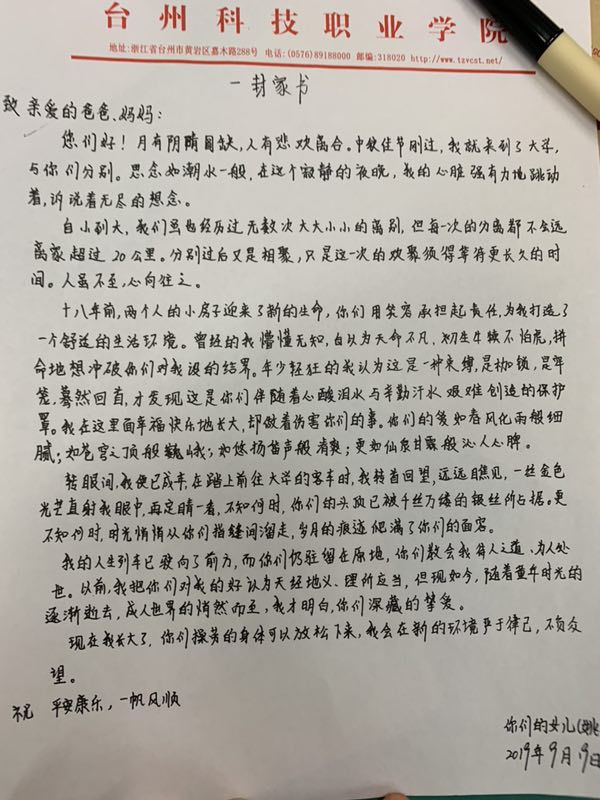 台州科技职业学院
地址:浙江省台州市黄岩区嘉木路288号 电话:(0576)89188000 邮编:318020 http://www.tzvcst.net/
一封家书
致亲爱的爸爸、妈妈:
您们好!月有阴晴圆缺,人有悲欢离合。中秋佳节刚过,我就来到了大学,
与你们分别。思念如潮水一般,在这个寂静的夜晚,我的心脏强有力地跳动
着,诉说着无尽的想念。
自小到大,我们虽也经历过无数次大大小小的离别,但每一次的分离都不会远
离家超过20公里。分别过后又是相聚,只是这一次的欢聚须得等待更长久的时
间。人虽不至,心向往之。
十八年前,两个人的小房子迎来了新的生命,你们用笑容承担起责任,为我打造了
一个舒适的生活环境。曾经的我懵懂无知,自以为天命不凡,初生牛犊不怕虎,拼
命地想冲破你们对我设的结界。年少轻狂的我认为这是一种束缚,是枷锁,是牢
笼,蓦然回首,才发现这是你们伴随着心酸泪水与辛勤汗水艰难创造的保护
罩。我在这里面幸福快乐地长大,却做着伤害你们的事。你们的爱如春风化雨般细
腻;如苍穹之顶般巍峨;如悠扬笛声般清爽;更如仙泉甘霖般沁人心脾。
转眼间,我便已成年,在踏上前往大学的客车时,我转首回望,远远瞧见,一丝金色
光芒直射我眼中,再定睛一看,不知何时,你们的头顶已被千丝万缕的银丝所占据。更
不知何时,时光悄悄从你们指缝间溜走,岁月的痕迹爬满了你们的面容。
我的人生列车已驶向了前方,而你们仍驻留在原地,你们教会我待人之道、为人处
世。以前,我把你们对我的好认为天经地义、理所应当,但现如今,随着童年时光的
逐渐逝去,成人世界的悄然而至,我才明白,你们深藏的挚爱。
现在我长大了,你们操劳的身体可以放松下来,我会在新的环境严于律己,不负众
望。
祝 平安康乐,一帆风顺
你们的女儿
2019年9月19日